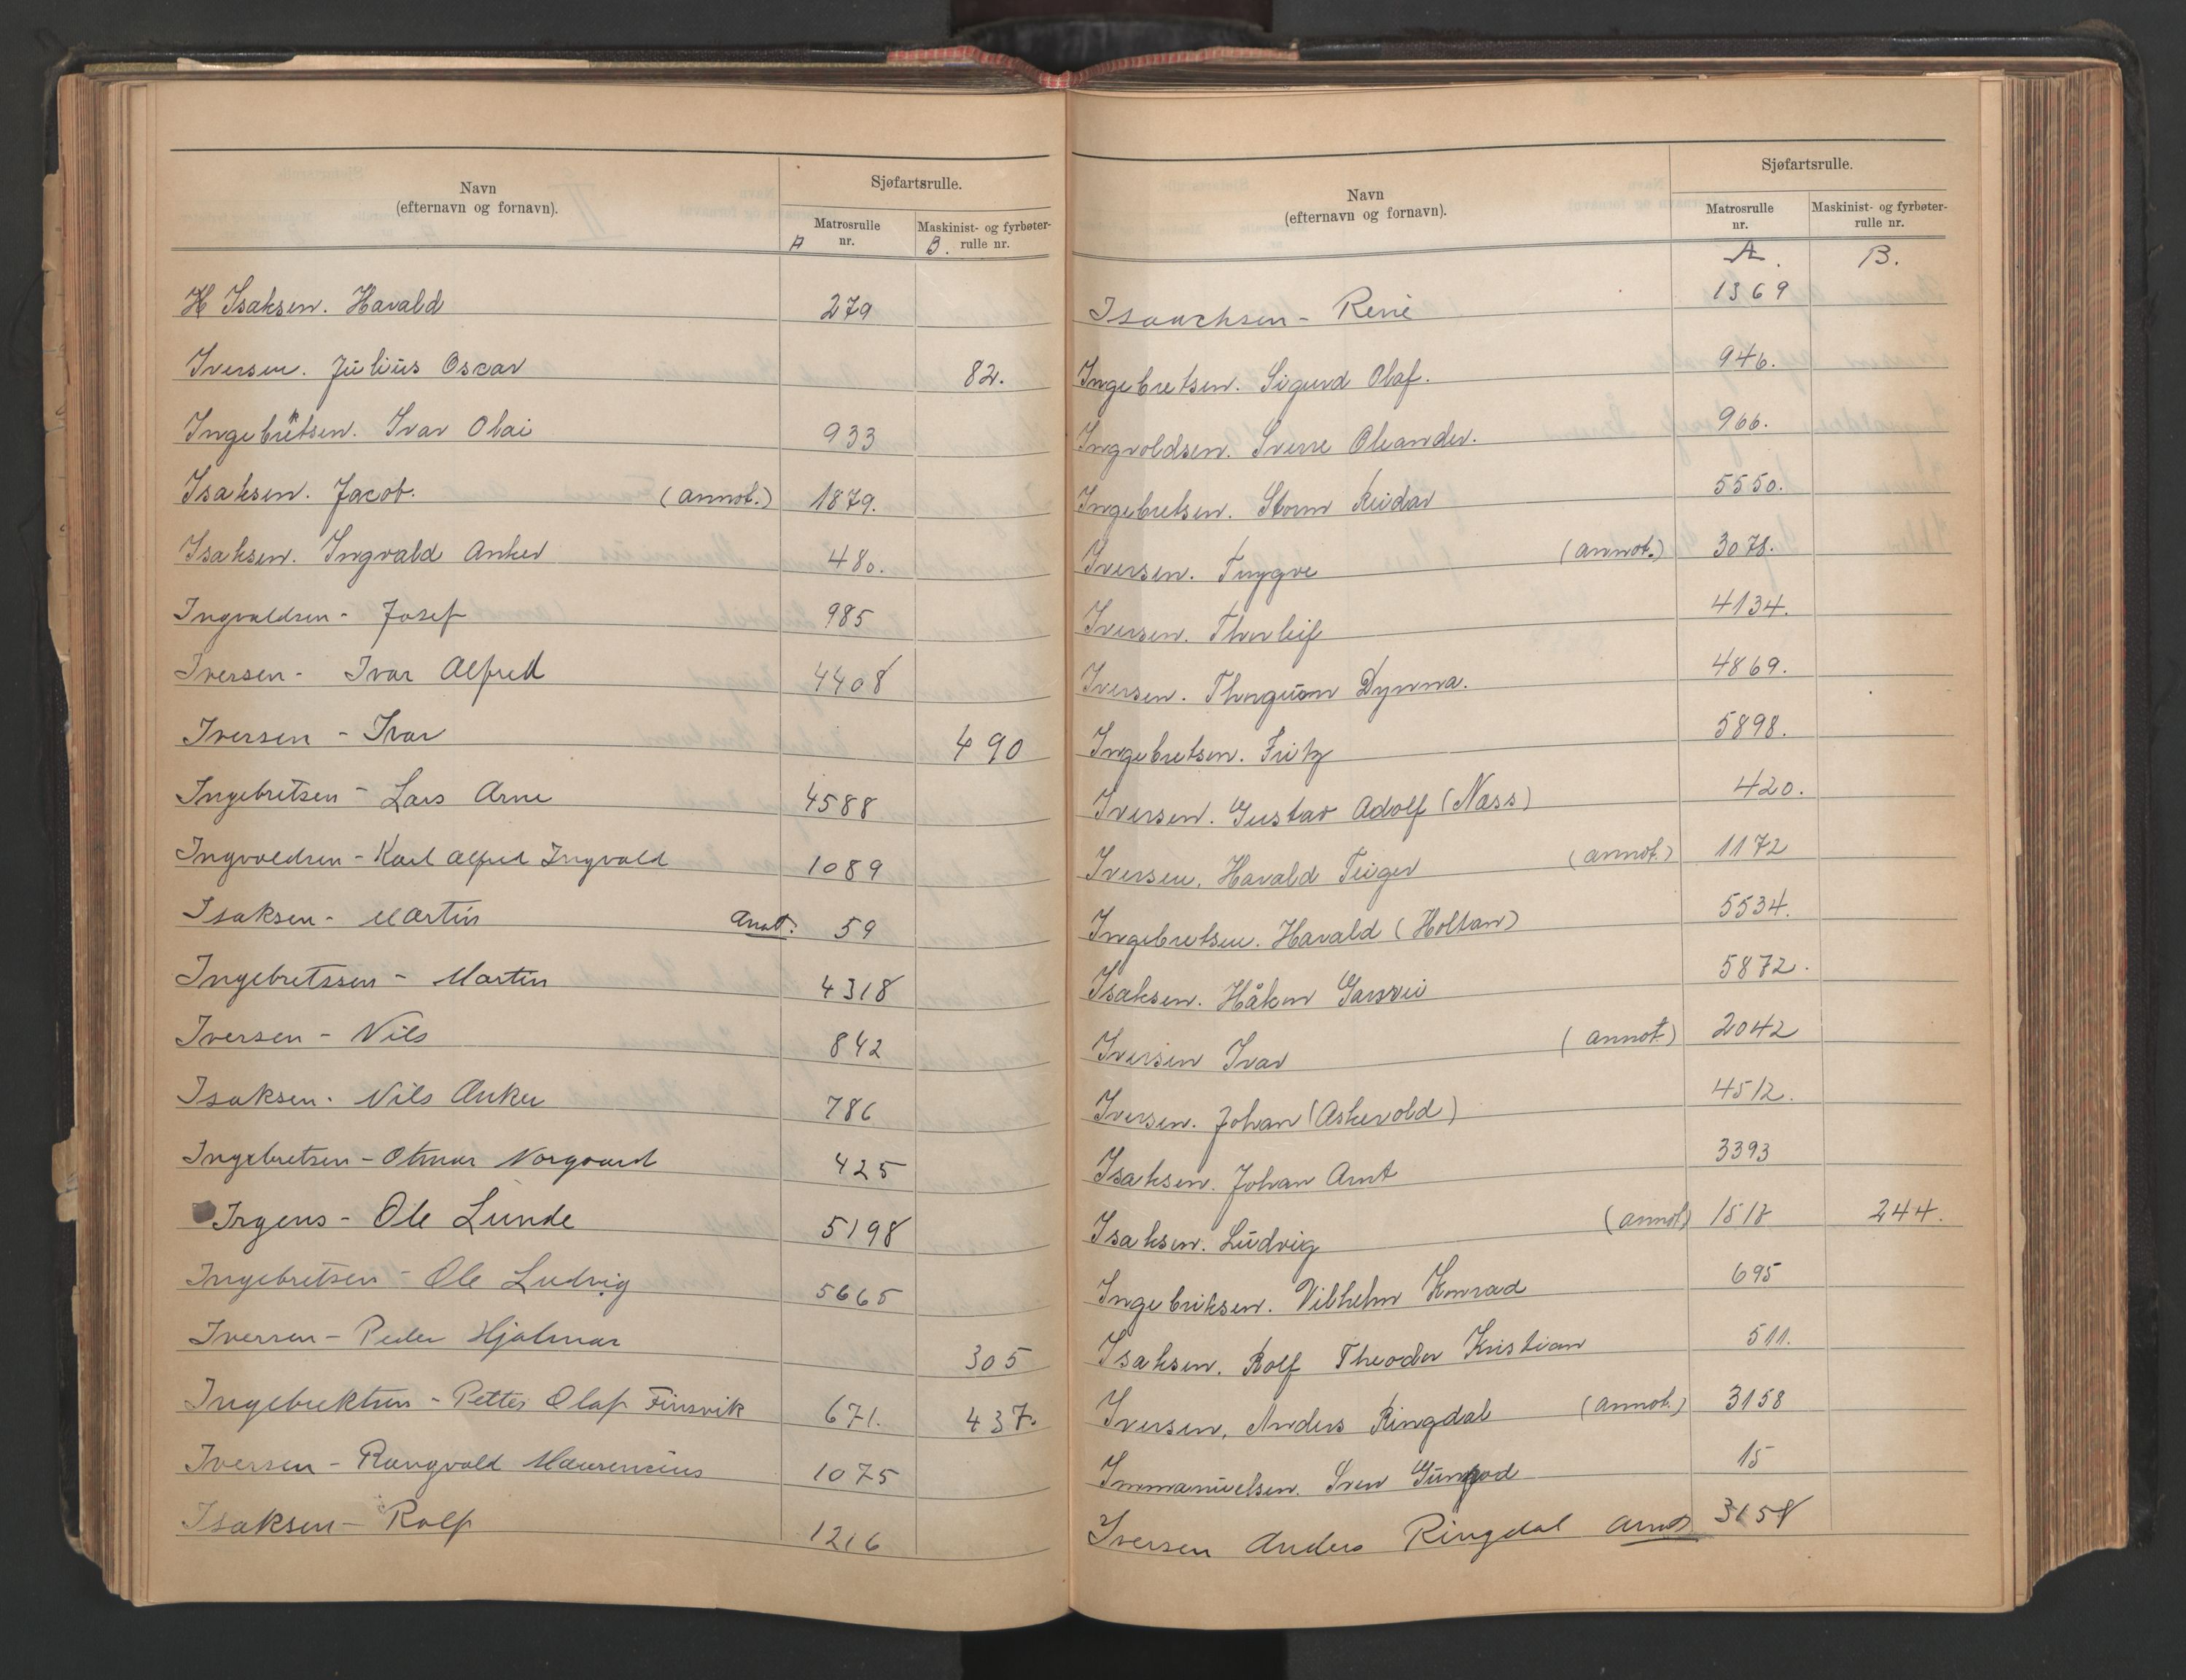 Navn
(efternavn og fornavn).
Sjøfartsrulle.
Matrosrulle
nr.
A
Maskinist- og fyrbøter-
rulle nr.
B.
H Isaksen. Harald 279
Iversen. Julius Oscar 82.
Ingebretsen. Ivar Olai 933
Isaksen. Jacob. (annot.) 1879.
Isaksen. Ingvald Anker 480.
Ingvaldsen - Josef 985
Iversen - Ivar Alfred 4408
Iversen - Ivar 490
Ingebretsen - Lars Arne 4588
Ingvoldsen - Karl Alfred Ingvald 1089
Isaksen - Martin Anot. 59
Ingebretssen - Martin 4318
Iversen - Nils 842
Isaksen - Nils Anker 786
Ingebretsen - Otmar Norgaard 425
Irgens - Ole Lunde 5198
Ingebretsen - Ole Ludvig 5665
Iversen - Peder Hjalmar 305
Ingebrektsen - Petter Olaf Finsvik 671. 437.
Iversen - Rangvald Maurencius 1075
Isaksen - Rolf 1216
Navn
(efternavn og fornavn).
Sjøfartsrulle.
Matrosrulle
nr.
Maskinist- og fyrbøter-
rulle nr.
A. B.
Isaachsen - René 1369
Ingebretsen. Sigurd Olaf. 946.
Ingvoldsen. Sverre Oleander. 966.
Ingebretsen. Storm Reidar 5550.
Iversen. Trygve (annot.) 3078.
Iversen. Thorleif 4134.
Iversen. Thorgunn Dynna. 4869.
Ingebretsen. Fritz 5898.
Iversen. Gustav Adolf (Næss) 420.
Iversen. Harald Teiger (annot.) 1172
Ingebretsen. Harald (Holtan) 5534.
Isaksen. Håkon 5872.
Iversen Ivar (annot) 2042
Iversen. Johan (Askevold) 4512.
Isaksen. Johan Arnt 3393
Isaksen. Ludvig (annot) 1518 244.
Ingebriksen. Vilhelm Konrad 695
Isaksen. Rolf Theodor Kristian 511.
Iversen, Anders Ringdal (annot.) 3158
Immanuelsen. Sven 15
Iversen Anders Ringdal annot 3158